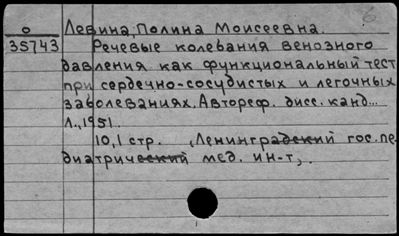 О Левина, Полина Моисеевна.
35743 Речевые колевания венозного
давления как функциональный тест
при сердечно-сосудистых и легочных
заболеваниях. Автореф. дисс. канд...
Л., 1951.
10,1 стр. , Ленинградский гос. пе-
диатрический мед. ин-т,.